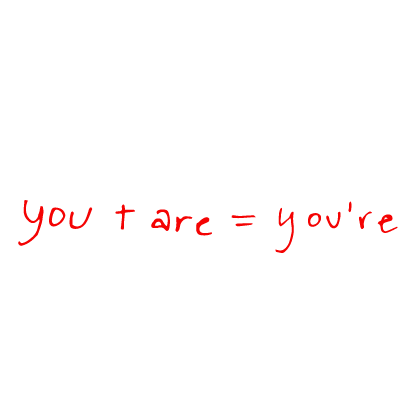 you + are = you're